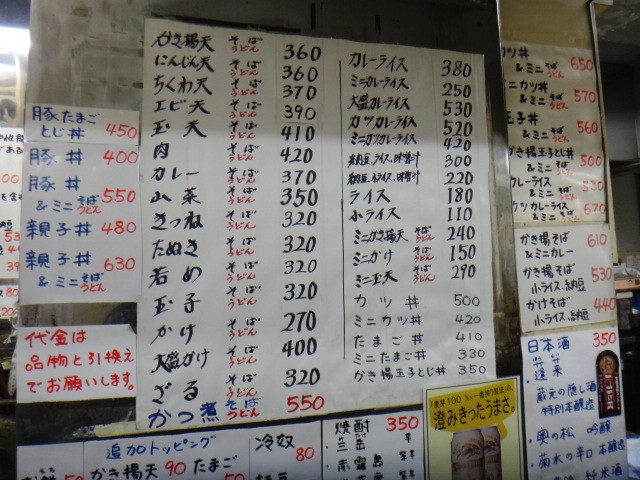 豚たまごとじ丼 450
豚丼 400
豚丼&ミニそばうどん 550
親子丼 480
親子丼&ミニそばうどん 630
代金は
品物と引換え
でお願いします。
かき揚天 そばうどん 360
にんじん天 そばうどん 360
ちくわ天 そばうどん 370
エビ天 そばうどん 390
玉天 そばうどん 410
肉 そばうどん 420
カレー そばうどん 370
山菜 そばうどん 350
きつね そばうどん 320
たぬき そばうどん 320
若め そばうどん 320
玉子 そばうどん 320
かけ そばうどん 270
大盛かけ そばうどん 400
ざる そばうどん 320
かつ煮 そばうどん 550
カレーライス 380
ミニカレーライス 250
大盛カレーライス 530
カツカレーライス 520
ミニカツカレーライス 420
納豆、ライス、味噌汁 300
納豆、小ライス、味噌汁 220
ライス 180
小ライス 110
ミニかき揚天 そばうどん 240
ミニかけ そばうどん 150
ミニ玉天 そばうどん 290
カツ丼 500
ミニカツ丼 420
たまご丼 410
ミニたまご丼 330
かき揚玉子とじ丼 350
カツ丼
&ミニそばうどん 650
ミニカツ丼
&ミニそばうどん 570
玉子丼
&ミニそばうどん 560
かき揚玉子とじ丼
&ミニそばうどん 500
カレーライス
&ミニそばうどん 530
カツカレーライス
&ミニそばうどん 670
かき揚そば 610
&ミニカレー
かき揚そば 530
小ライス、納豆
かけそば 440
小ライス、納豆
日本酒 350
蓬莱
蔵元の隠し酒
特別本醸造
奥の松 吟醸
菊水の辛口 本醸造
純米酒
追加トッピング
かき揚天 90 たまご
冷奴
80
焼酎 350
三岳 芋
赤霧島
澄みきったうまさ。